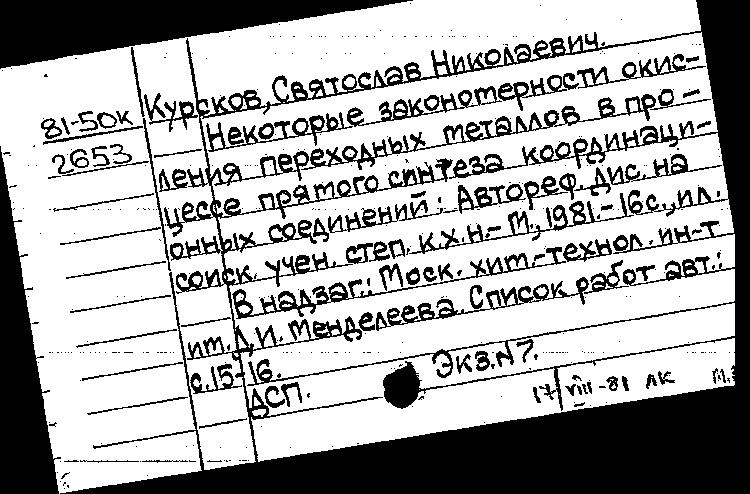 81-50к
2653
Курсков, Святослав Николаевич.
Некоторые закономерности окис-
ления переходных металлов в про-
цессе прямого синтеза координаци-
онных соединений: Автореф. дис. на
соиск. учен. степ. к.х.н.- М., 1981.- 16с., ил.
В надзаг.: Моск. хим.-технол. ин-т
им. Д.И. Менделеева. Список работ авт.:
с.15-16.
ДСП. Экз.N7.
17/VIII-81 ЛК